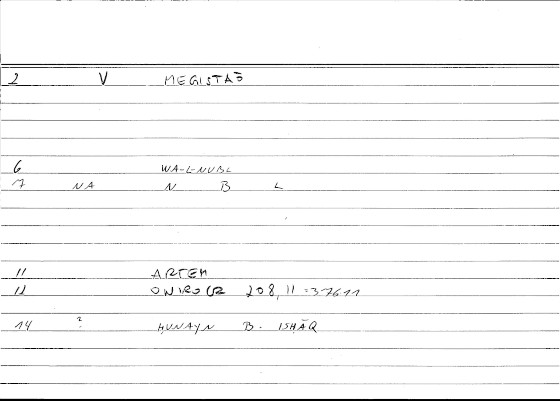 2 V MEGISTAS
6 WA-L-NUBL
7 NA N B L
11 ARTEM
12 ONIROCR 208,11 = 376 11
14 ? HUNAYN B. ISHĀQ